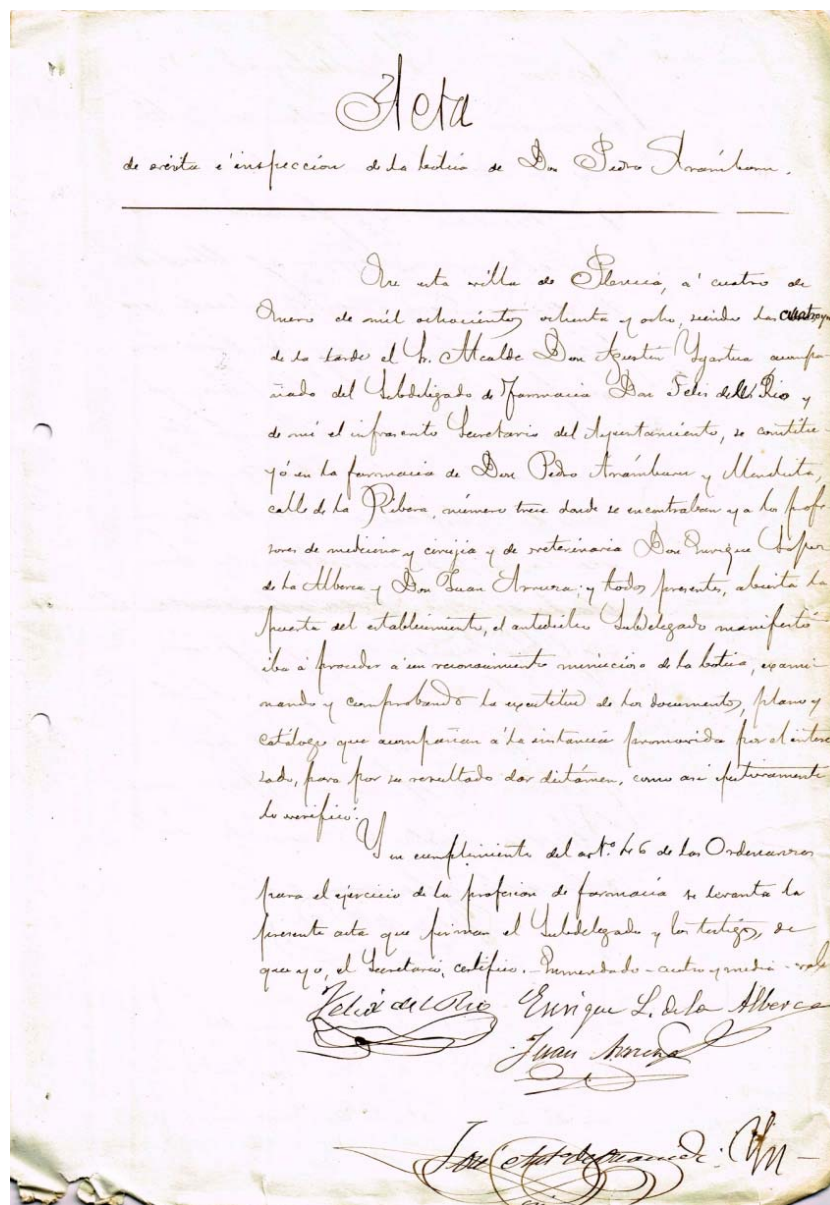 Acta
de visita é inspección de la botica de Don Pedro Arámbaru.
En esta villa de Plencia, á cuatro de
Enero de mil ochocientos ochenta y ocho, siendo las cuatro y m
de la tarde el Sr. Alcalde Don Agustín Ygartua acompa
ñado del Subdelegado de Farmacia Don Felis del Rio y
de mí el infrascrito Secretario del Ayuntamiento, se constitu-
yó en la farmacia de Don Pedro Arrámbaru y Mendieta,
calle de la Ribera, número trece donde se encontraban ya los profe
sores de medicina y cirujia y de veterinaria Don Enrique Lopez
de la Alberca y Don Juan; y todos presentes, abierta la
puerta del establecimiento, el antedicho Subdelegado manifestó
iba á proceder á un reconocimiento minucioso de la botica, exami-
nando y comprobando la exactitud de los documentos, plano y
catálogo que acompañan á la instancia promovida por el intere
sado, para por su resultado dar dictámen, como así efectivamente
lo verificó.
Y en cumplimiento del artº. 46 de las Ordenanzas
para el ejercicio de la profesion de farmacia se levanta la
presente acta que firman el Subdelegado y los testigos, de
que yo, el Secretario, certifico.- Enmendado - cuatro y media - vale
Felix del Rio Enrique L. de la Alberca
Juan
José Antº. de